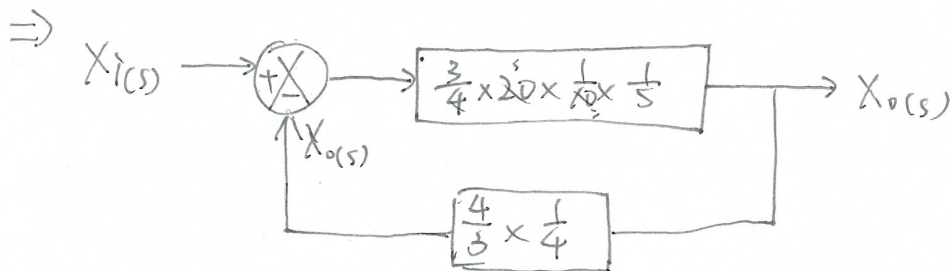 ⇒ Xi(s) + − 3/4 × 20 5 × 1/10 2 × 1/5 Xo(s)
Xo(s)
4/3 × 1/4